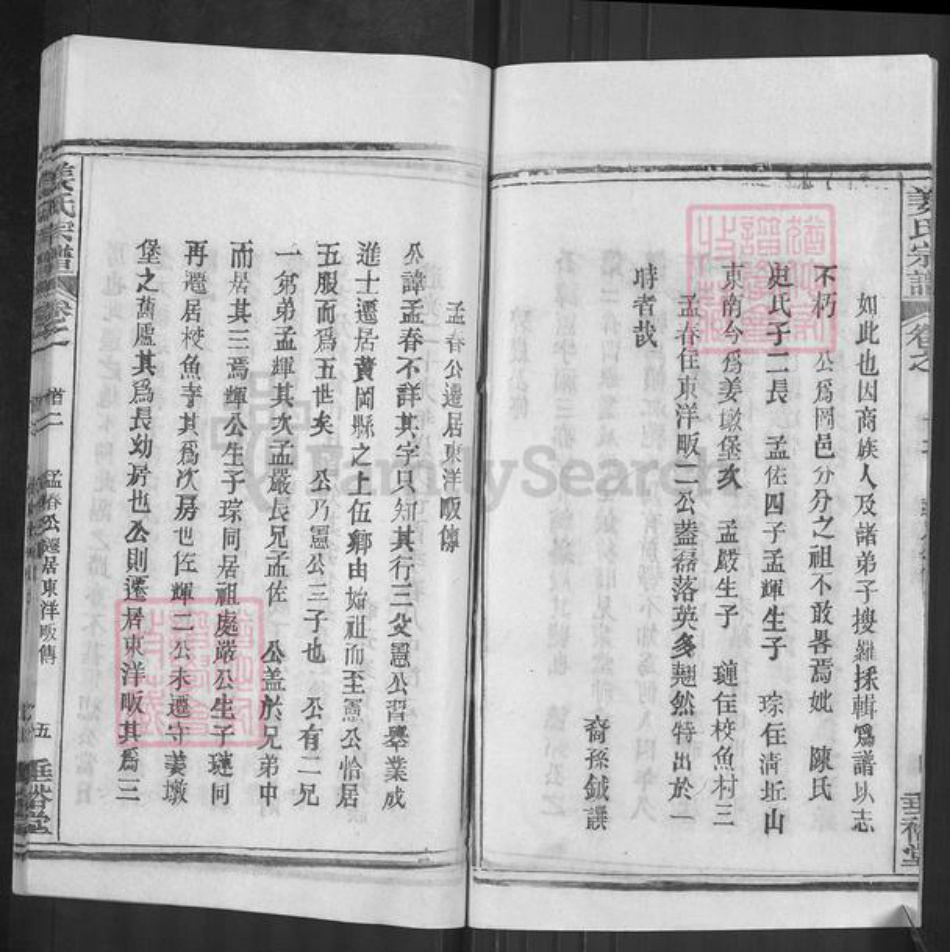 姜氏宗譜
卷之
垂裕堂
如此也因商族人及諸弟子搜羅採輯爲譜以志
不朽 公爲岡邑分分之祖不敢畧焉妣 陳氏
庭氏子二長 孟佐四子孟輝生子 琮住清坵山
東南今爲姜墩堡次 孟嚴生子 璉住校魚村三
孟春住東洋畈二公蓋磊落英多翹然特出於一
時者哉
裔孫鉞譔
孟春公遷居東洋畈傳
公諱孟春不詳其字只知其行三父憲公習舉業成
進士遷居黃岡縣之上伍鄉由始祖而至憲公恰居
五服而爲五世矣 公乃憲公三子也 公有二兄
一弟弟孟輝其次孟嚴長兄孟佐 公蓋於兄弟中
而居其三焉輝公生子琮同居祖處嚴公生子璉同
再遷居校魚寺其爲次房也佐輝二公未遷守姜墩
堡之舊廬其爲長幼房也公則遷居東洋畈其爲三
姜氏宗譜
卷之一
孟春公遷居東洋畈傳
五
垂裕堂
FamilySearch